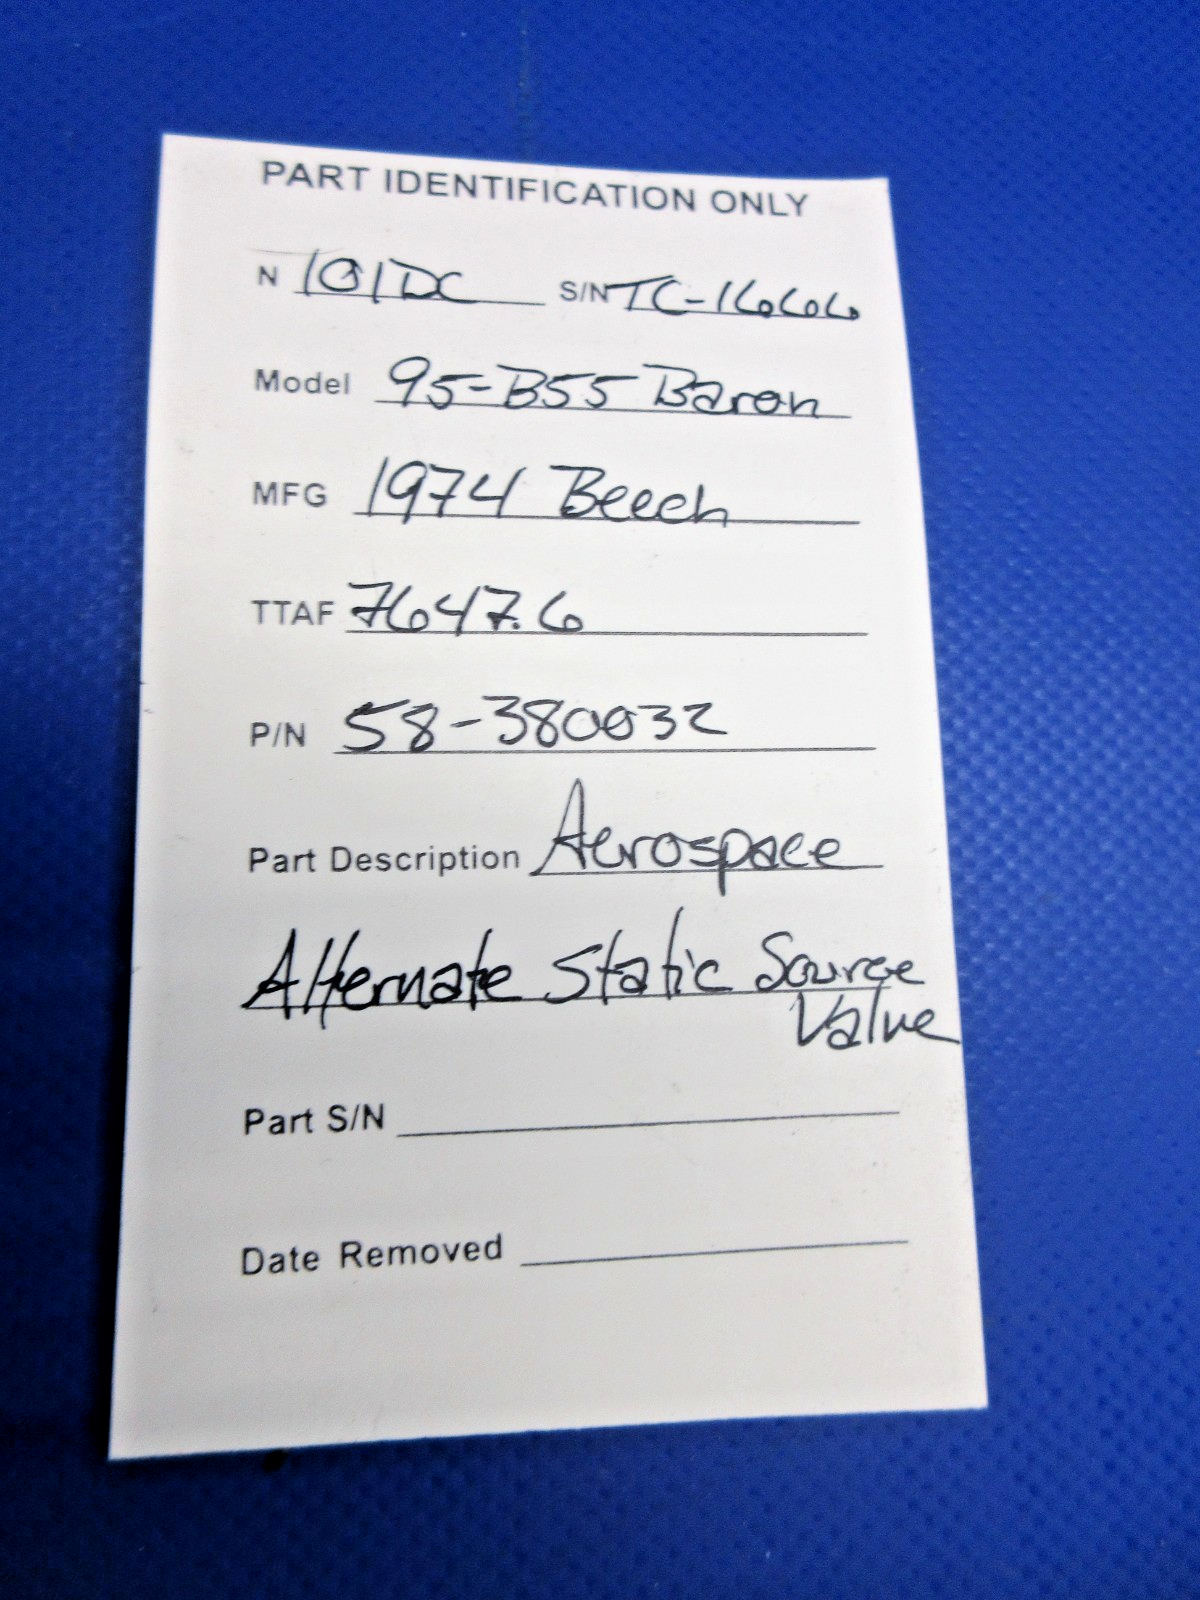 PART IDENTIFICATION ONLY
N 101DC S/N TC-1666
Model 95-B55 Baron
MFG 1974 Beech
TTAF 7647.6
P/N 58-380032
Part Description Aerospace
Alternate Static Source
Valve
Part S/N
Date Removed